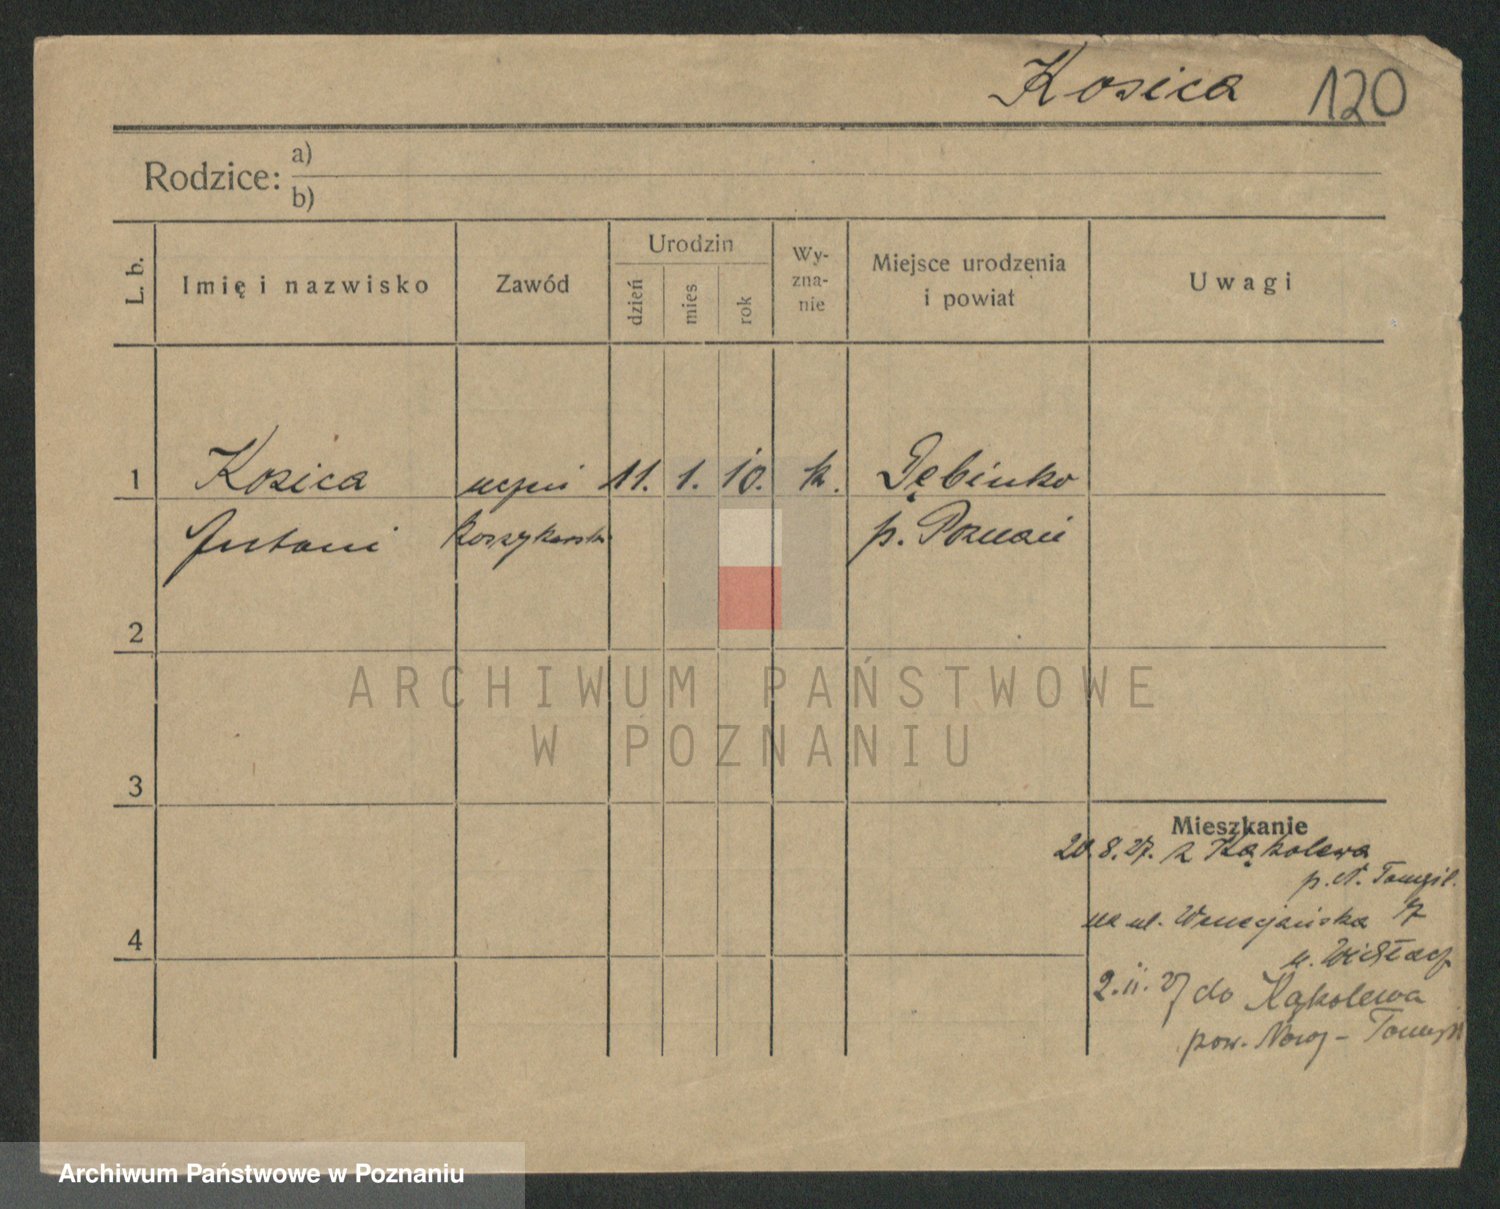 Kosica 120
Rodzice: a)
b)
L. b.
Imię i nazwisko
Zawód
Urodzin
dzień
mies
rok
Wy-
zna-
nie
Miejsce urodzenia
i powiat
Uwagi
1 Kosica uczeń 11. 1. 10. k. Dębinko
Antoni koszykarski p. Poznań
2
3
4
Mieszkanie
20.8.27. z Kąkolewa
p. N. Tomyśl.
na ul. Wenecjańska 7
u.
2.11.27 do Kąkolewa
pow. Nowy-Tomyśl
ARCHIWUM PAŃSTWOWE
W POZNANIU
Archiwum Państwowe w Poznaniu